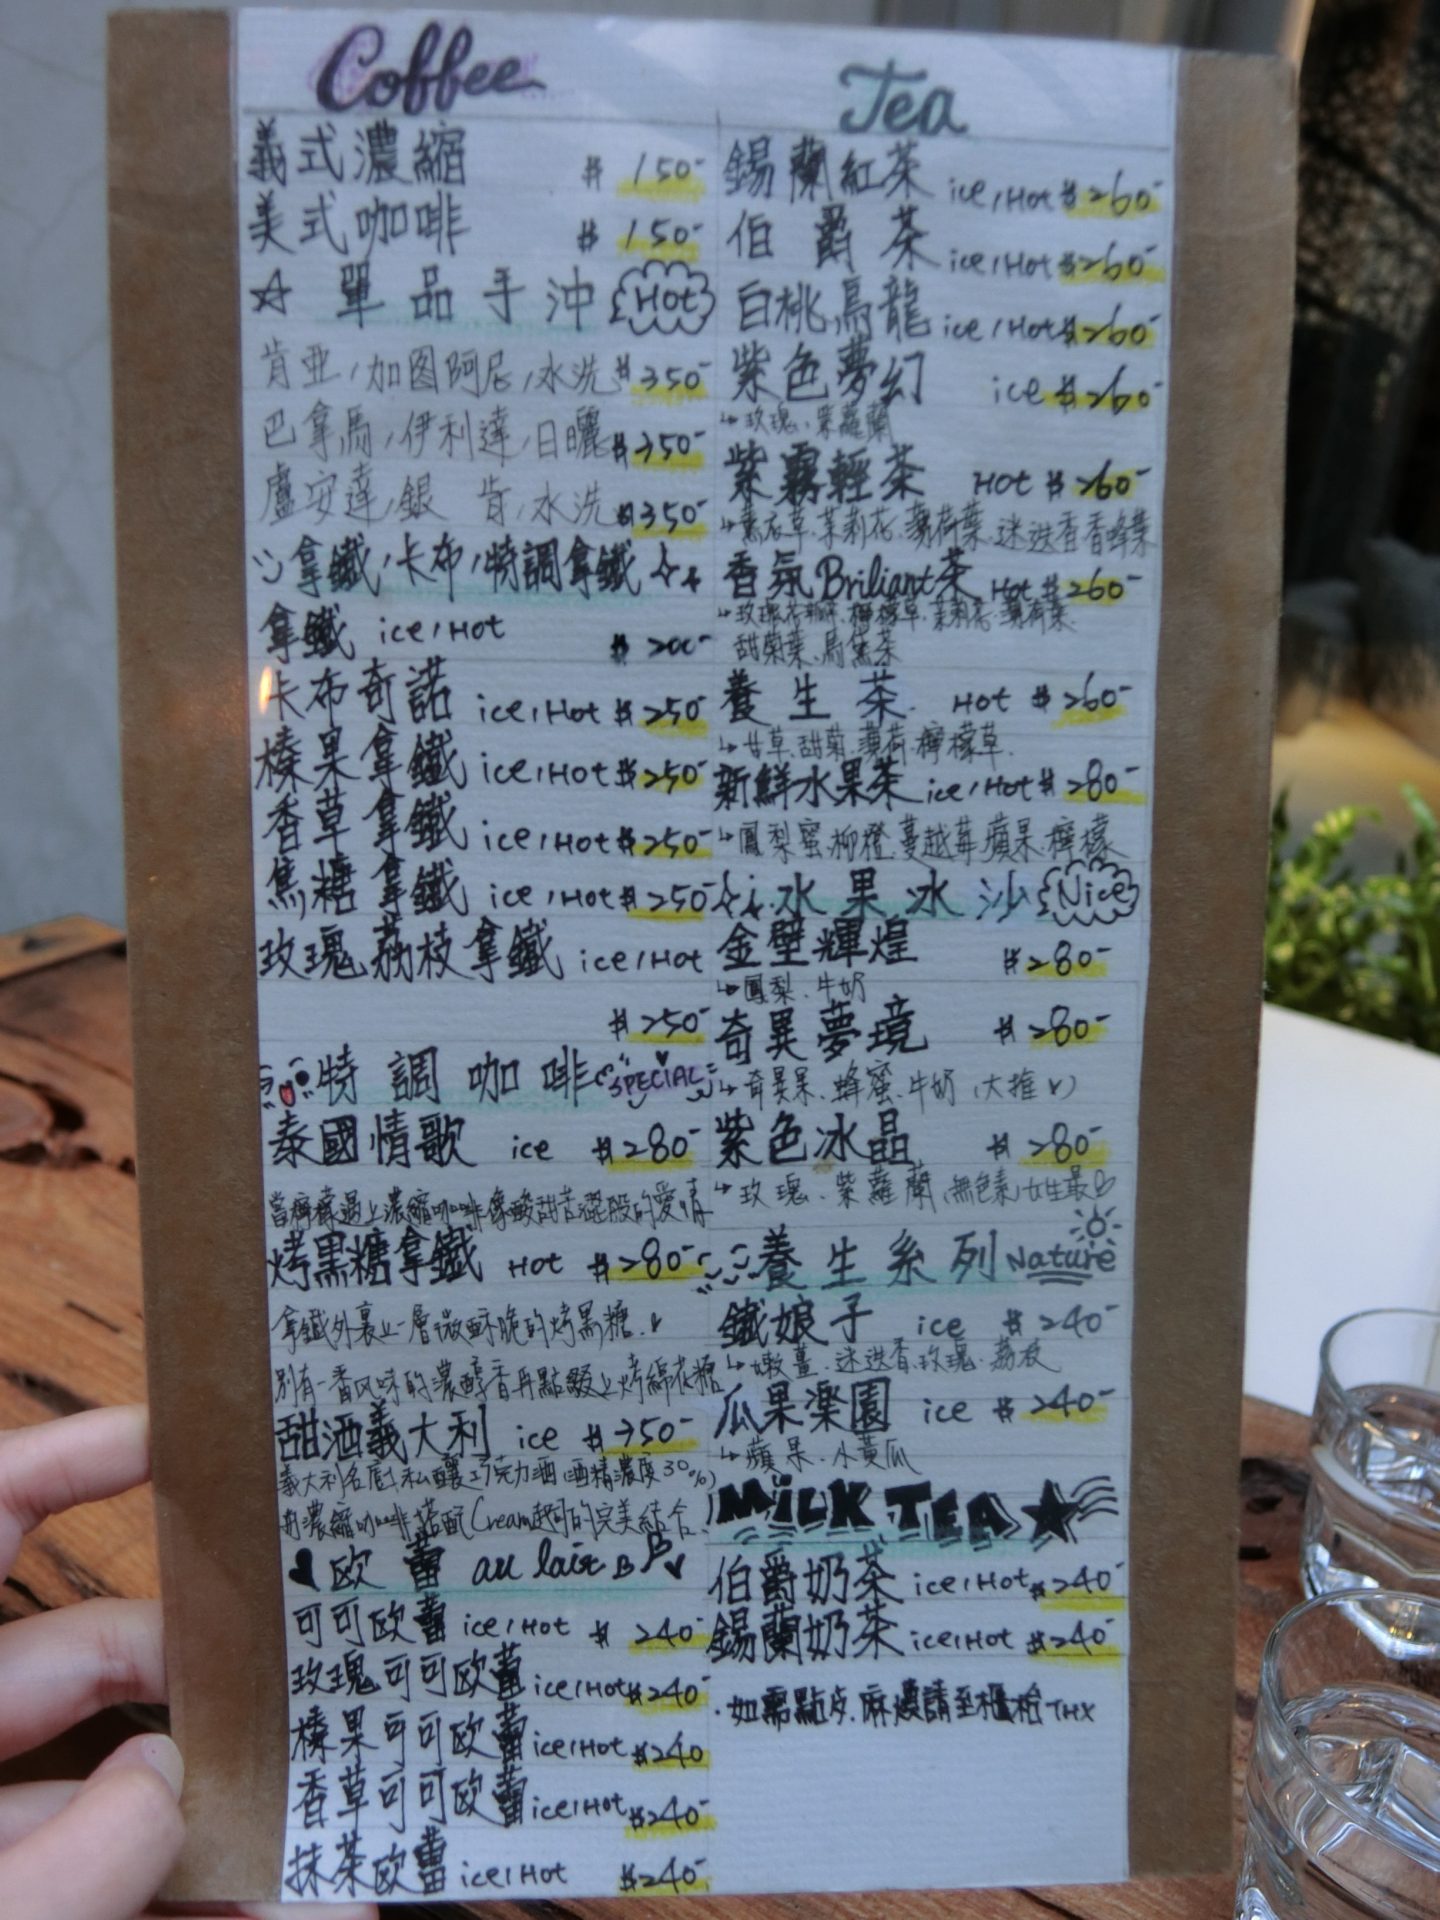 Coffee
義式濃縮 $150-
美式咖啡 $150-
☆ 單品手沖 Hot
肯亞,加图阿尼,水洗 $350-
巴拿馬,伊利達,日曬 $350-
盧安達,銀 肯,水洗 $350-
拿鐵,卡布,特調拿鐵
拿鐵 ice,Hot $200-
卡布奇諾 ice,Hot $250-
榛果拿鐵 ice,Hot $250-
香草拿鐵 ice,Hot $250-
焦糖拿鐵 ice,Hot $250-
玫瑰荔枝拿鐵 ice,Hot
$250-
特調咖啡 SPECIAL
泰國情歌 ice $280-
當檸檬遇上濃縮咖啡像酸甜苦澀般的愛情
烤黑糖拿鐵 Hot $280-
拿鐵外裹上一層微酥脆的烤黑糖
別有一番风味的濃醇香再點綴上烤綿花糖
甜酒義大利 ice $350-
義大利名廚私釀巧克力酒(酒精濃度30%)
濃縮咖啡搭配Cream起司的完美結合
♥欧蕾 au lait
可可欧蕾 ice,Hot $240
玫瑰可可欧蕾 ice,Hot $240-
榛果可可欧蕾 ice,Hot $240
香草可可欧蕾 ice,Hot $240-
抹茶欧蕾 ice,Hot $240-
Tea
錫蘭紅茶 ice,Hot $260-
伯爵茶 ice,Hot $260-
白桃烏龍 ice,Hot $260-
紫色夢幻 ice $260-
↳玫瑰、紫蘿蘭
紫霧輕茶 Hot $260-
↳薰衣草.茉莉花.薄荷葉.迷迭香香蜂葉
香氛Briliant茶 Hot $260-
↳玫瑰花瓣.檸檬草.茉莉花.薄荷葉
甜菊葉、馬黛茶
養生茶. Hot $260-
↳甘草.甜菊.薄荷.檸檬草.
新鮮水果茶 ice,Hot $280-
↳鳳梨蜜.柳橙.蔓越莓.蘋果.檸檬
水果冰沙 Nice
金壁輝煌 $280-
↳鳳梨、牛奶
奇異夢境 $280-
↳奇異果、蜂蜜、牛奶(大推♡)
紫色冰晶 $280-
↳玫瑰、紫蘿蘭(無色素)女生最♡
養生系列 Nature
鐵娘子 ice $240-
↳嫩薑.迷迭香.玫瑰.荔枝
瓜果樂園 ice $240-
↳蘋果、小黃瓜
MiLK TEA★
伯爵奶茶 ice,Hot $240-
錫蘭奶茶 ice,Hot $240-
·如需點皮.麻煩請至櫃檯THX